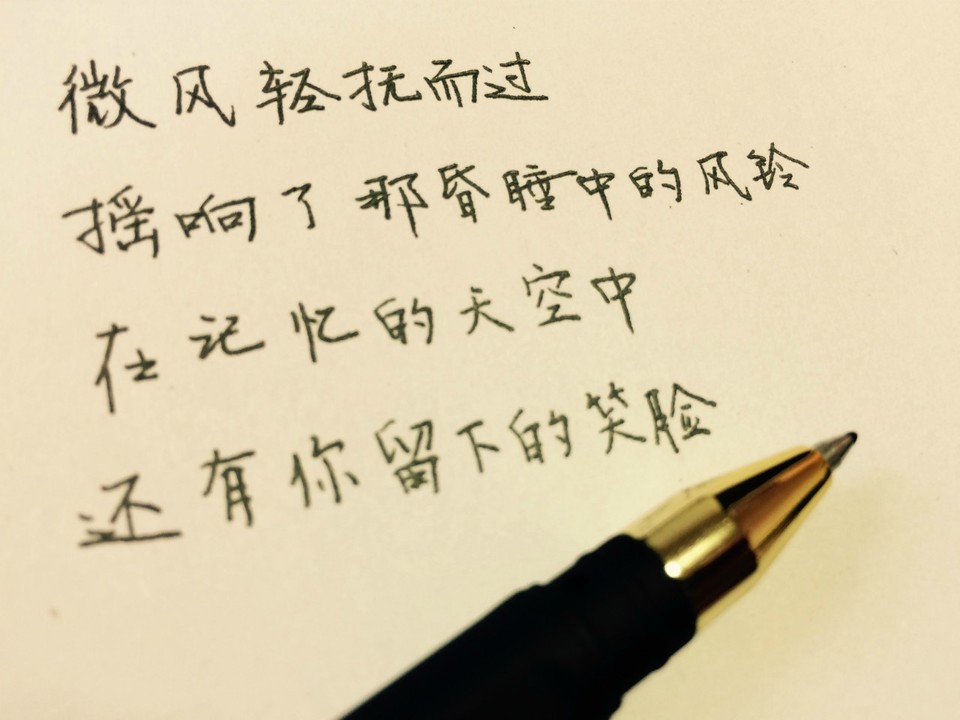 微风轻抚而过
摇响了那昏睡中的风铃
在记忆的天空中
还有你留下的笑脸